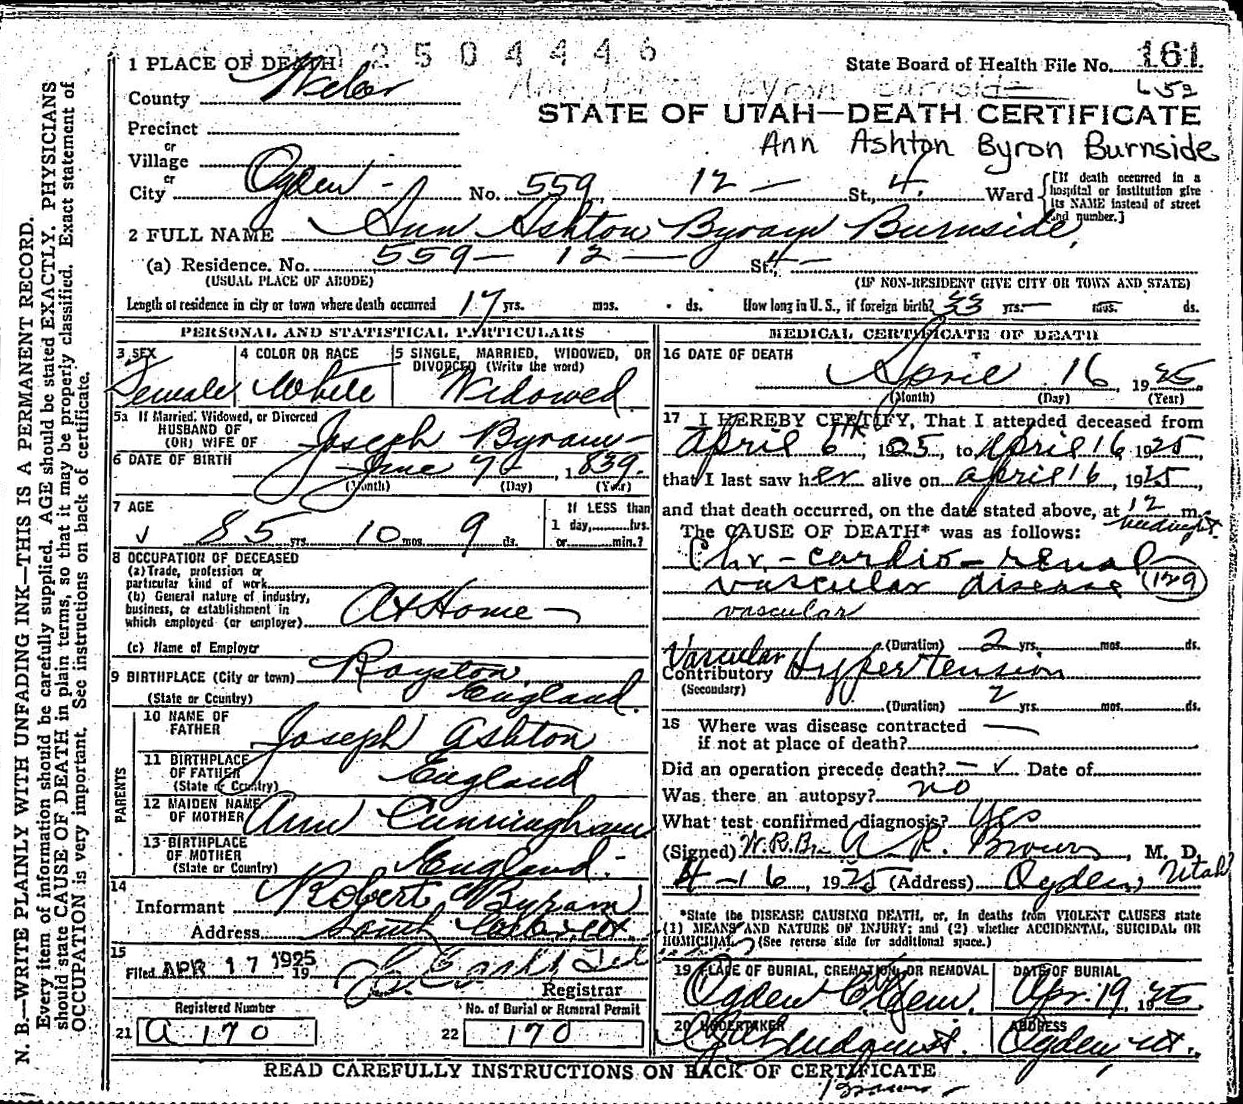 2504446
1 PLACE OF DEATH
State Board of Health File No. 161
County Weber
652
STATE OF UTAH—DEATH CERTIFICATE
Precinct
Ann Ashton Byron Burnside
or
Village
or
City Ogden - No. 559 12 — St., 4. Ward
[If death occurred in a hospital or institution give its NAME instead of street and number.]
2 FULL NAME Ann Ashton Byram Burnside,
(a) Residence. No. 559 — 12 — St., 4 —
(USUAL PLACE OF ABODE) (IF NON-RESIDENT GIVE CITY OR TOWN AND STATE)
Length of residence in city or town where death occurred 17 yrs. mos. ds. How long in U. S., if foreign birth? 33 yrs. — mos. — ds.
PERSONAL AND STATISTICAL PARTICULARS
3 SEX Female
4 COLOR OR RACE White
5 SINGLE, MARRIED, WIDOWED, OR DIVORCED (Write the word) Widowed
5a If Married, Widowed, or Divorced
HUSBAND OF
(OR) WIFE OF Joseph Byram —
6 DATE OF BIRTH June 7 - 1839.
(Month) (Day) (Year)
7 AGE
√ 85 yrs. 10 mos. 9 ds.
If LESS than
1 day, hrs.
or min.?
8 OCCUPATION OF DECEASED
(a) Trade, profession or
particular kind of work
(b) General nature of industry,
business, or establishment in
which employed (or employer) At Home —
(c) Name of Employer
9 BIRTHPLACE (City or town) Royston,
(State or Country) England.
PARENTS
10 NAME OF FATHER Joseph Ashton
11 BIRTHPLACE OF FATHER England
(State or Country)
12 MAIDEN NAME OF MOTHER Ann Cunningham
13 BIRTHPLACE OF MOTHER England.
(State or Country)
14
Informant Robert Byram
Address South
15
Filed APR 17 1925 19
Registrar
Registered Number No. of Burial or Removal Permit
21 A 170 22 170
MEDICAL CERTIFICATE OF DEATH
16 DATE OF DEATH
April 16 1925
(Month) (Day) (Year)
17 I HEREBY CERTIFY, That I attended deceased from
April 6th, 1925, to April 16 1925
that I last saw her alive on April 16, 1925,
and that death occurred, on the date stated above, at 12 m.
midnight.
The CAUSE OF DEATH* was as follows:
Chr. - cardio - renal
vascular disease (129)
vascular
(Duration) 2 yrs. mos. ds.
Vascular
Contributory Hypertension
(Secondary)
(Duration) 2 yrs. mos. ds.
18 Where was disease contracted —
if not at place of death?
Did an operation precede death? — √ Date of
Was there an autopsy? no
What test confirmed diagnosis? Yes
(Signed) W.R.Br. A R. Brown, M. D.
4-16, 1925 (Address) Ogden, Utah
*State the DISEASE CAUSING DEATH, or, in deaths from VIOLENT CAUSES state
(1) MEANS AND NATURE OF INJURY; and (2) whether ACCIDENTAL, SUICIDAL OR
HOMICIDAL. (See reverse side for additional space.)
19 PLACE OF BURIAL, CREMATION, OR REMOVAL DATE OF BURIAL
Ogden City Cem. Apr. 19, 1925
20 UNDERTAKER ADDRESS
Lindquist. Ogden, Ut.
READ CAREFULLY INSTRUCTIONS ON BACK OF CERTIFICATE
N. B.—WRITE PLAINLY WITH UNFADING INK—THIS IS A PERMANENT RECORD.
Every item of information should be carefully supplied. AGE should be stated EXACTLY. PHYSICIANS
should state CAUSE OF DEATH in plain terms, so that it may be properly classified. Exact statement of
OCCUPATION is very important. See instructions on back of certificate.